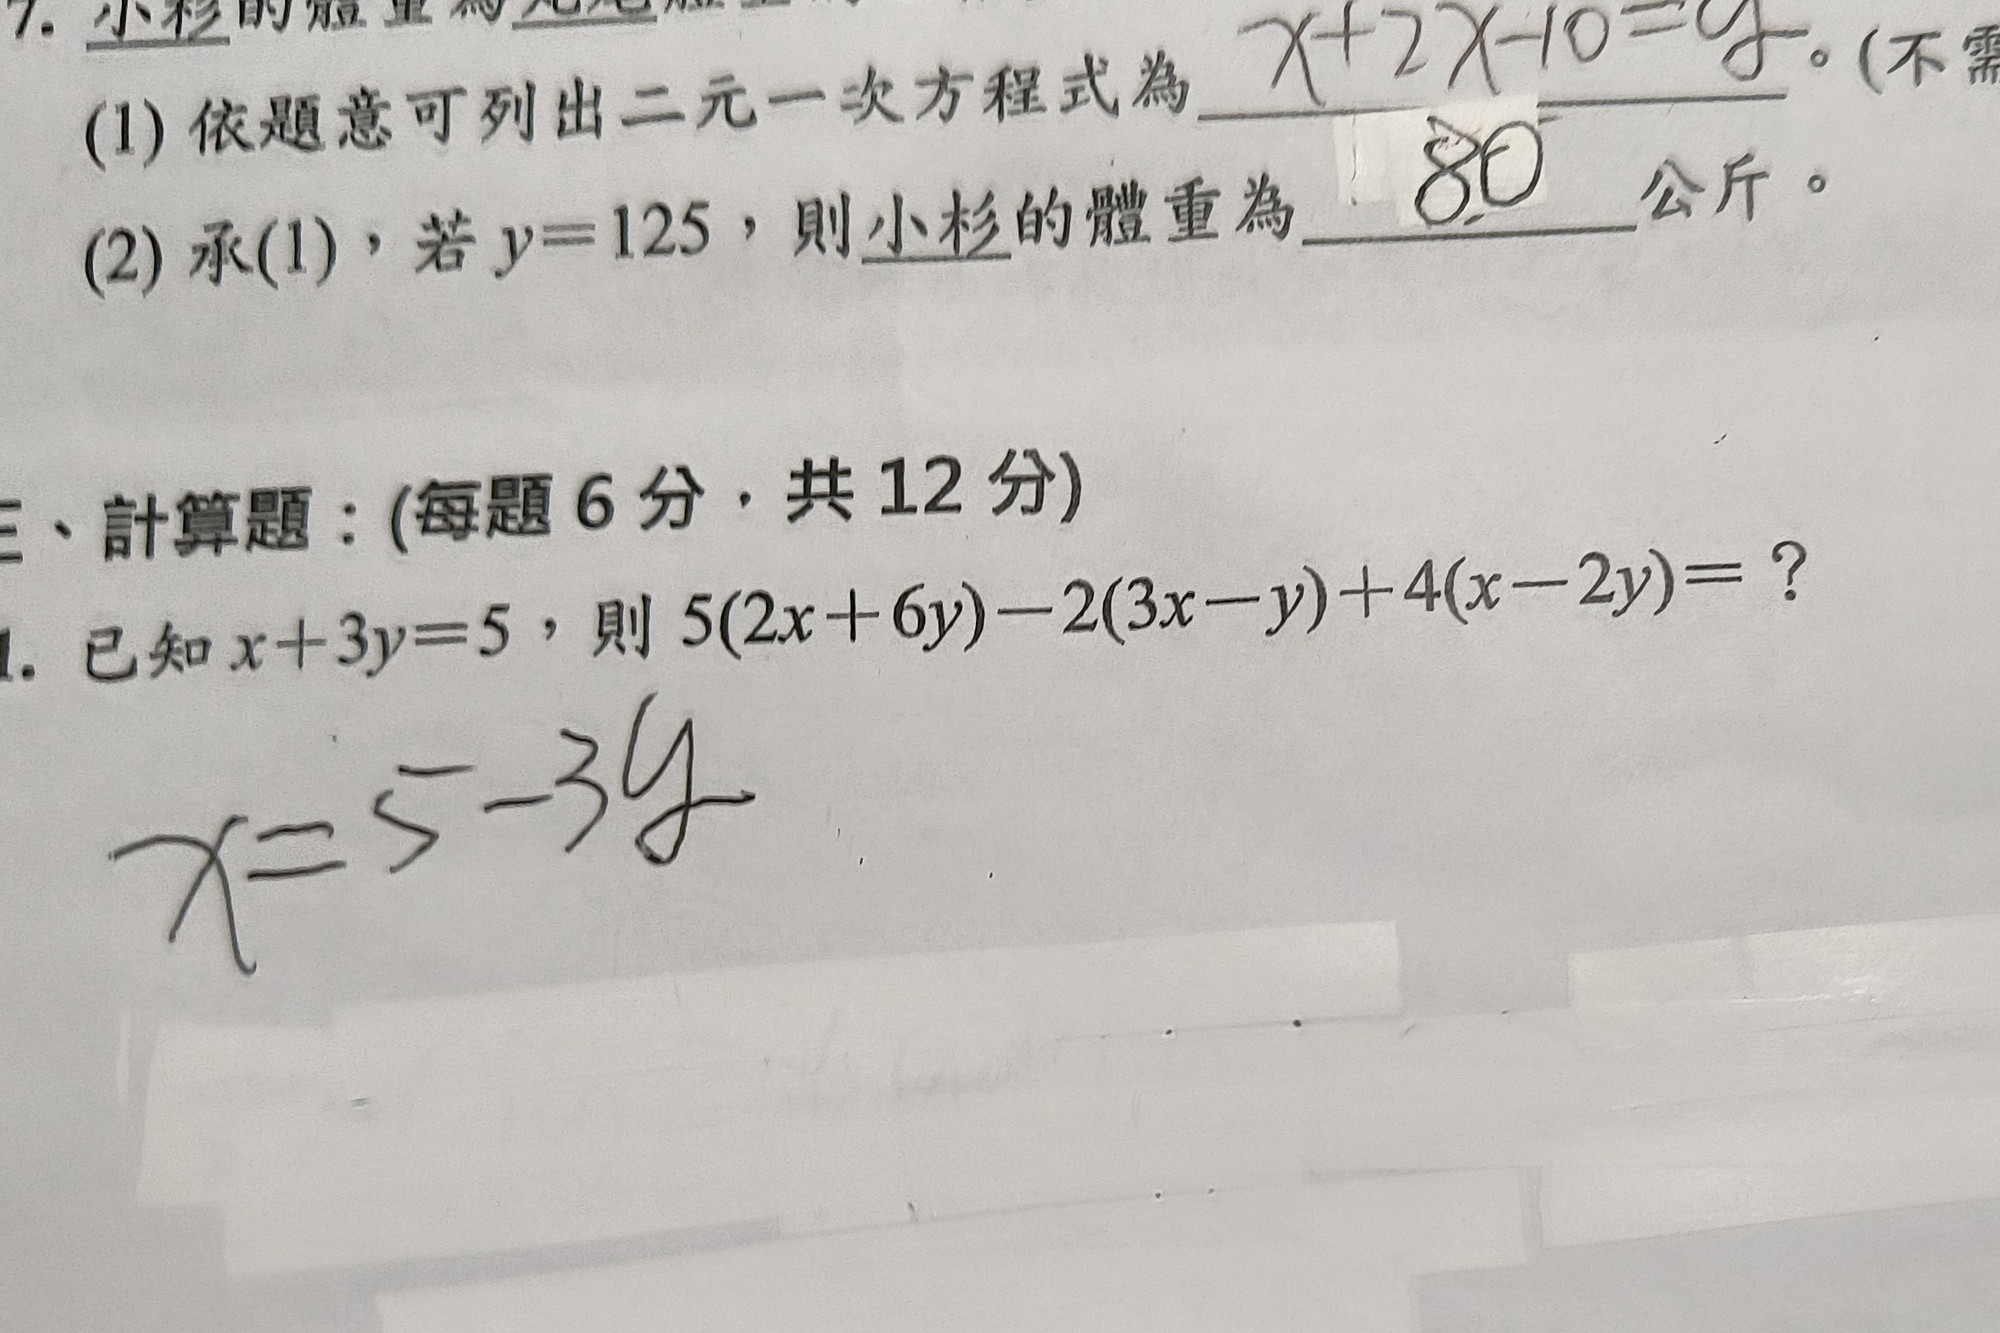 7. 小杉的體重為
x+2x-10=y
(1) 依題意可列出二元一次方程式為 。(不需
(2) 承(1)，若 y=125，則小杉的體重為 80 公斤。
三、計算題：(每題 6 分．共 12 分)
1. 已知 x+3y=5，則 5(2x+6y)-2(3x-y)+4(x-2y)=？
x=5-3y